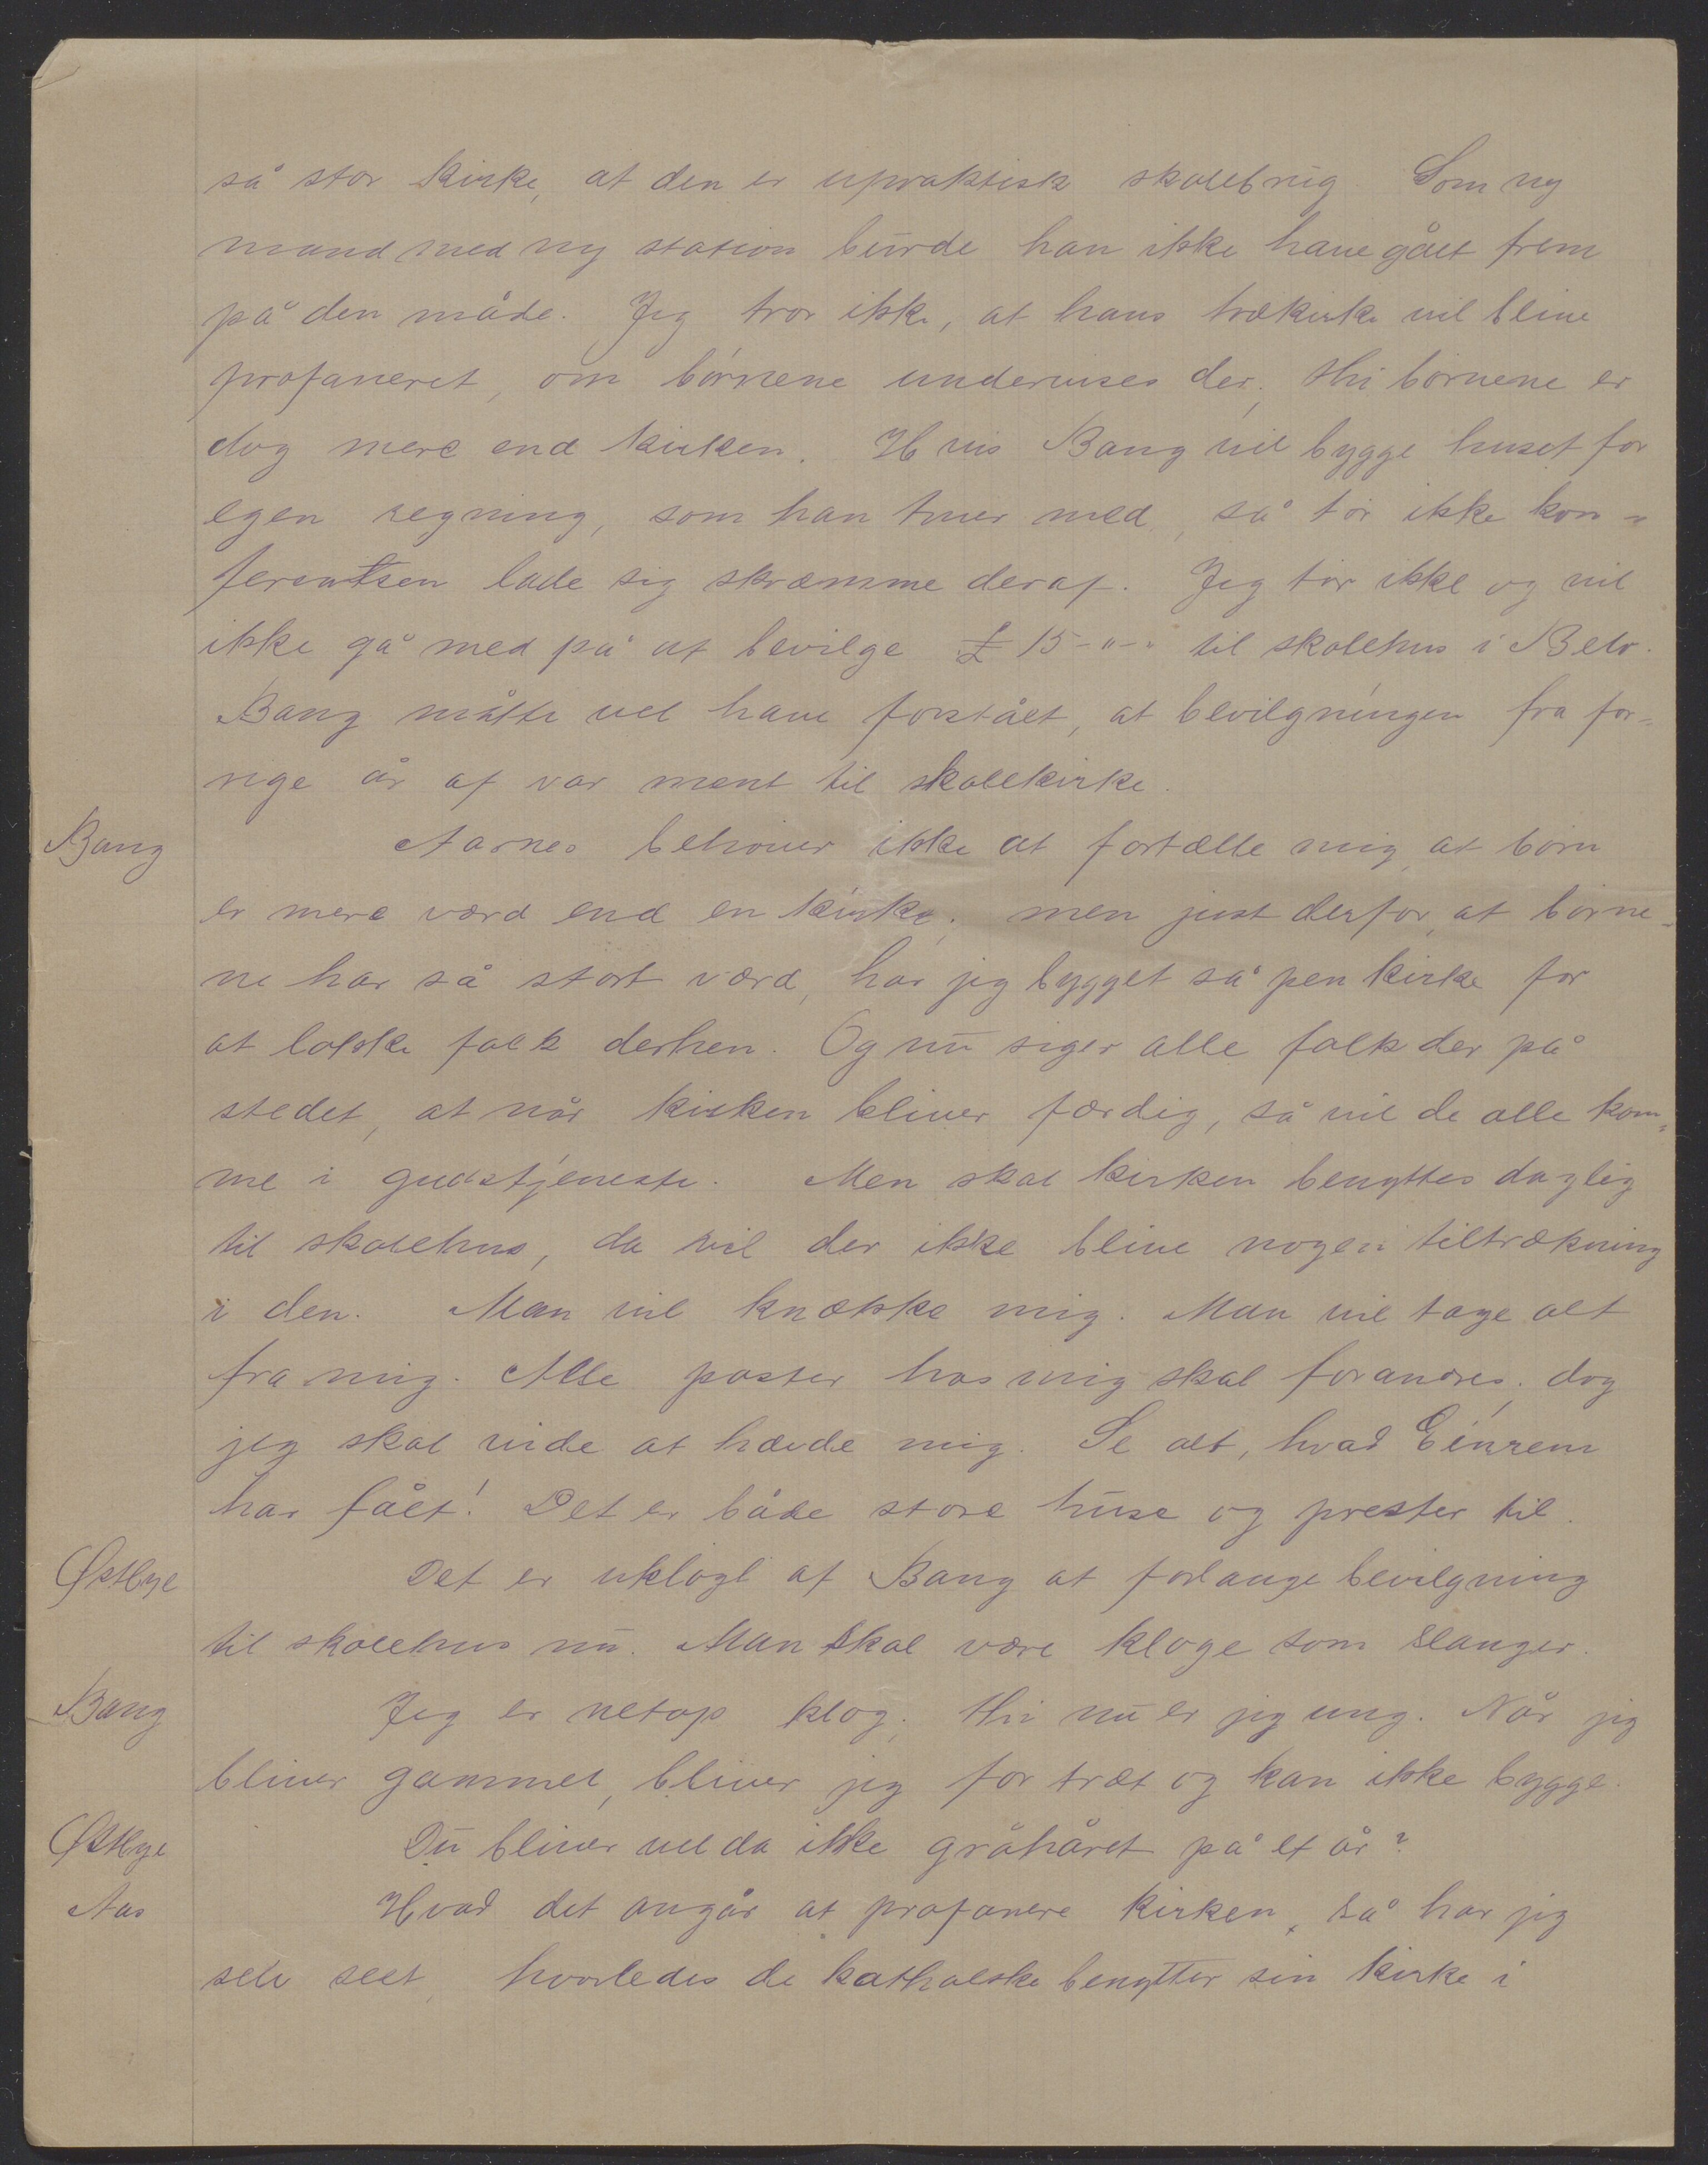 så stor kirke, at den er upraktisk skolebrug. Som ny
mand med ny station burde han ikke have gået frem
på den måde. Jeg tror ikke, at hans trækirke vil blive
profaneret, om børnene undervises der; thi børnene er
dog mere end kirken. Hvis Bang vil bygge huset for
egen regning, som han truer med, så tør ikke kon=
ferentsen lade sig skræmme deraf. Jeg tør ikke og vil
ikke gå med på at bevilge £ 15-"-" til skolehus i Belo.
Bang måtte vel have forstået, at bevilgningen fra for=
rige år af var ment til skolekirke.
Bang Aarnes behøver ikke at fortælle mig, at børn
er mere værd end en kirke; men just derfor, at børne=
ne har så stort værd, har jeg bygget så pen kirke for
at lokke folk derhen. Og nu siger alle folk der på
stedet, at når kirken bliver færdig, så vil de alle kom=
me i gudstjeneste. Men skal kirken benyttes daglig
til skolehus, da vil der ikke blive nogen tiltrækning
i den. Man vil knække mig. Man vil tage alt
fra mig. Alle poster hos mig skal forandres; dog
jeg skal vide at hævde mig. Se alt, hvad Einrem
har fået! Det er både store huse og prester til.
Østbye Det er uklogt af Bang at forlange bevilgning
til skolehus nu. Man skal være kloge som slanger.
Bang Jeg er netop klog; thi nu er jeg ung. Når jeg
bliver gammel, bliver jeg for træt og kan ikke bygge.
Østbye Du bliver vel da ikke gråhåret på et år?
Aas Hvad det angår at profanere kirken, så har jeg
selv seet, hvorledes de katholske benytter sin kirke i